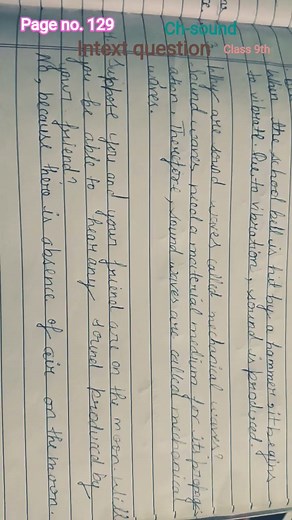 Page no. 129
Ch-sound
Intext question
Class 9th
When the school bell is hit by a hammer, it begins
to vibrate. Due to vibration, sound is produced
Why are sound waves called mechanical waves?
Sound waves need a material medium for its propag-
ation. Therefore, sound waves are called mechanical
waves.
Suppose you and your friend are on the moon. Will
you be able to hear any sound produced by
your friend?
No, because there is absence of air on the moon.